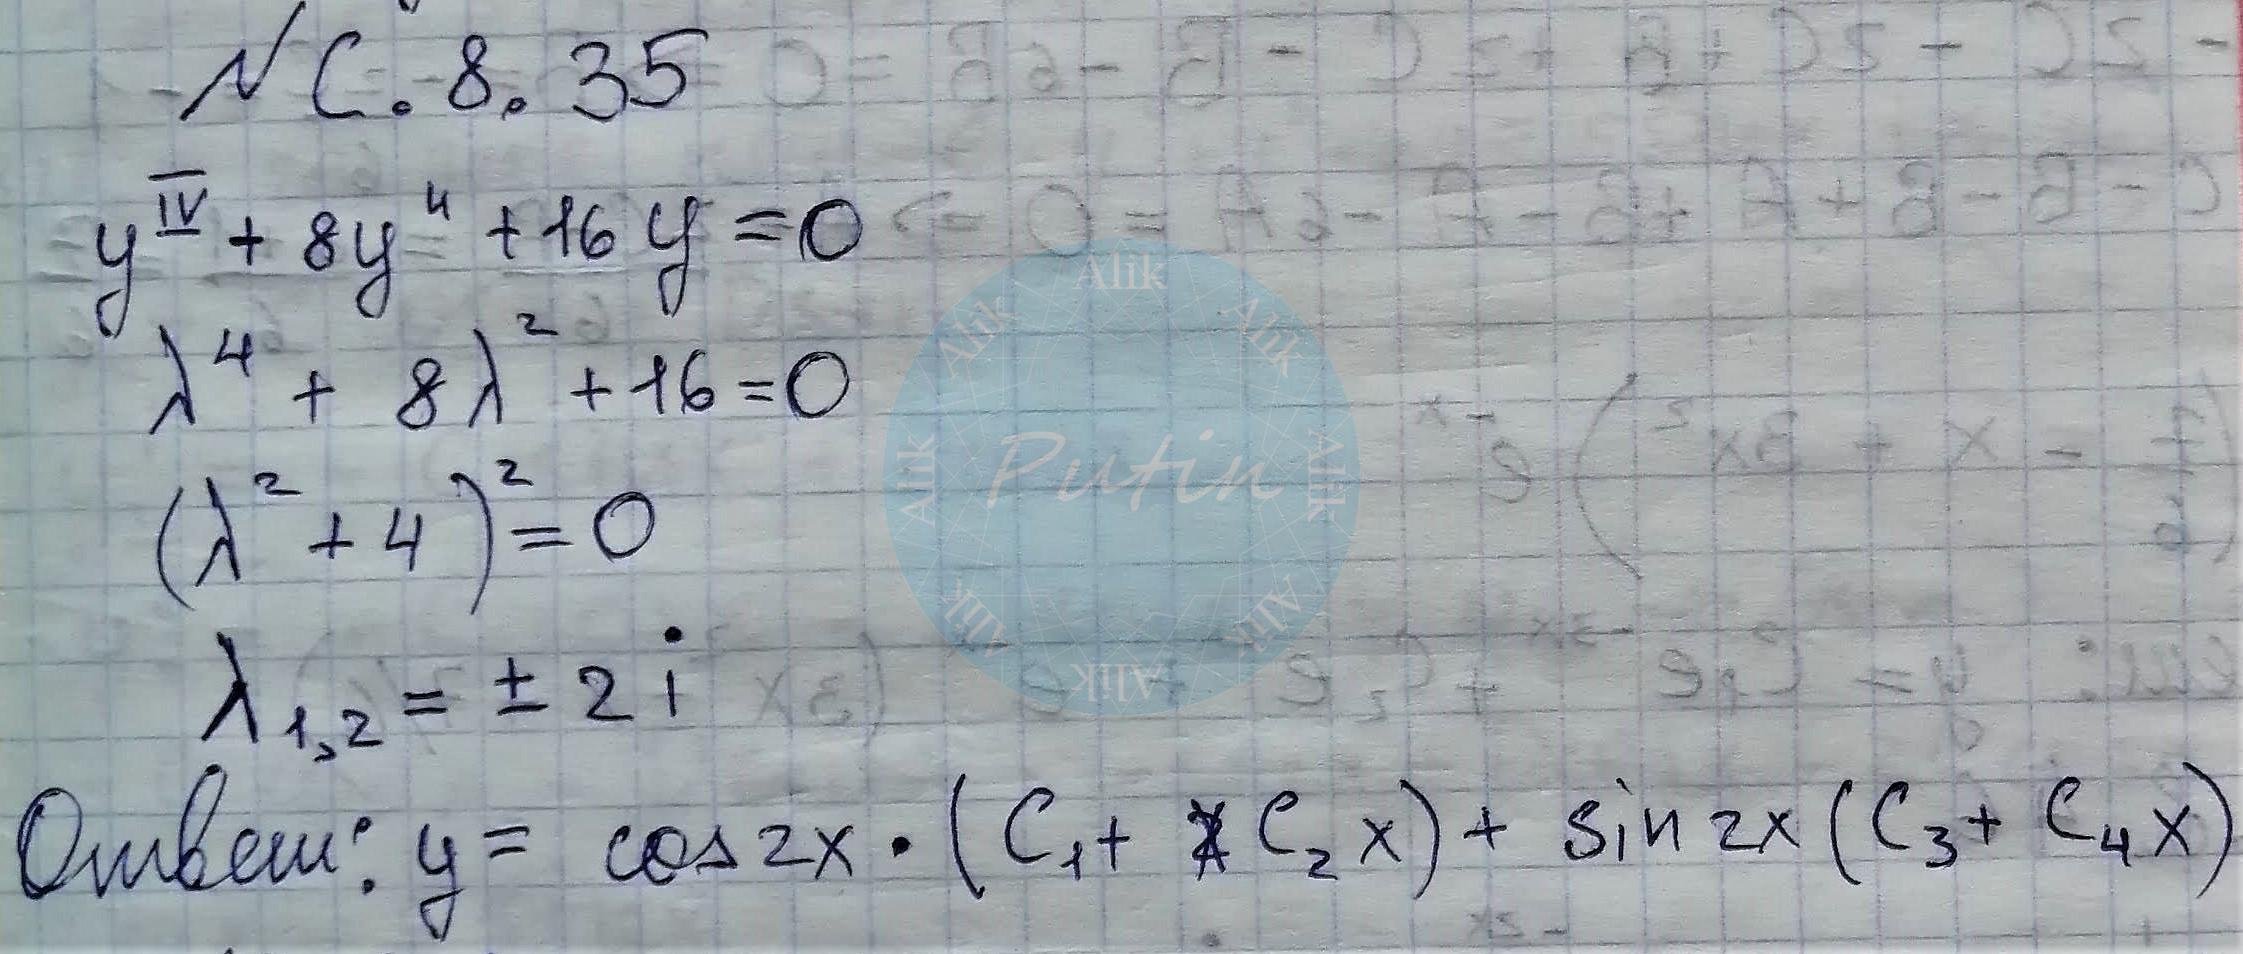 № С. 8. 35
y^IV + 8y'' + 16y = 0
λ^4 + 8λ^2 + 16 = 0
(λ^2 + 4)^2 = 0
λ_1,2 = ± 2i
Ответ: y = cos2x · (C_1 + C_2 x) + sin 2x (C_3 + C_4 x)
Alik
Alik
Alik
Alik
Alik
Alik
Alik
Alik
Putin